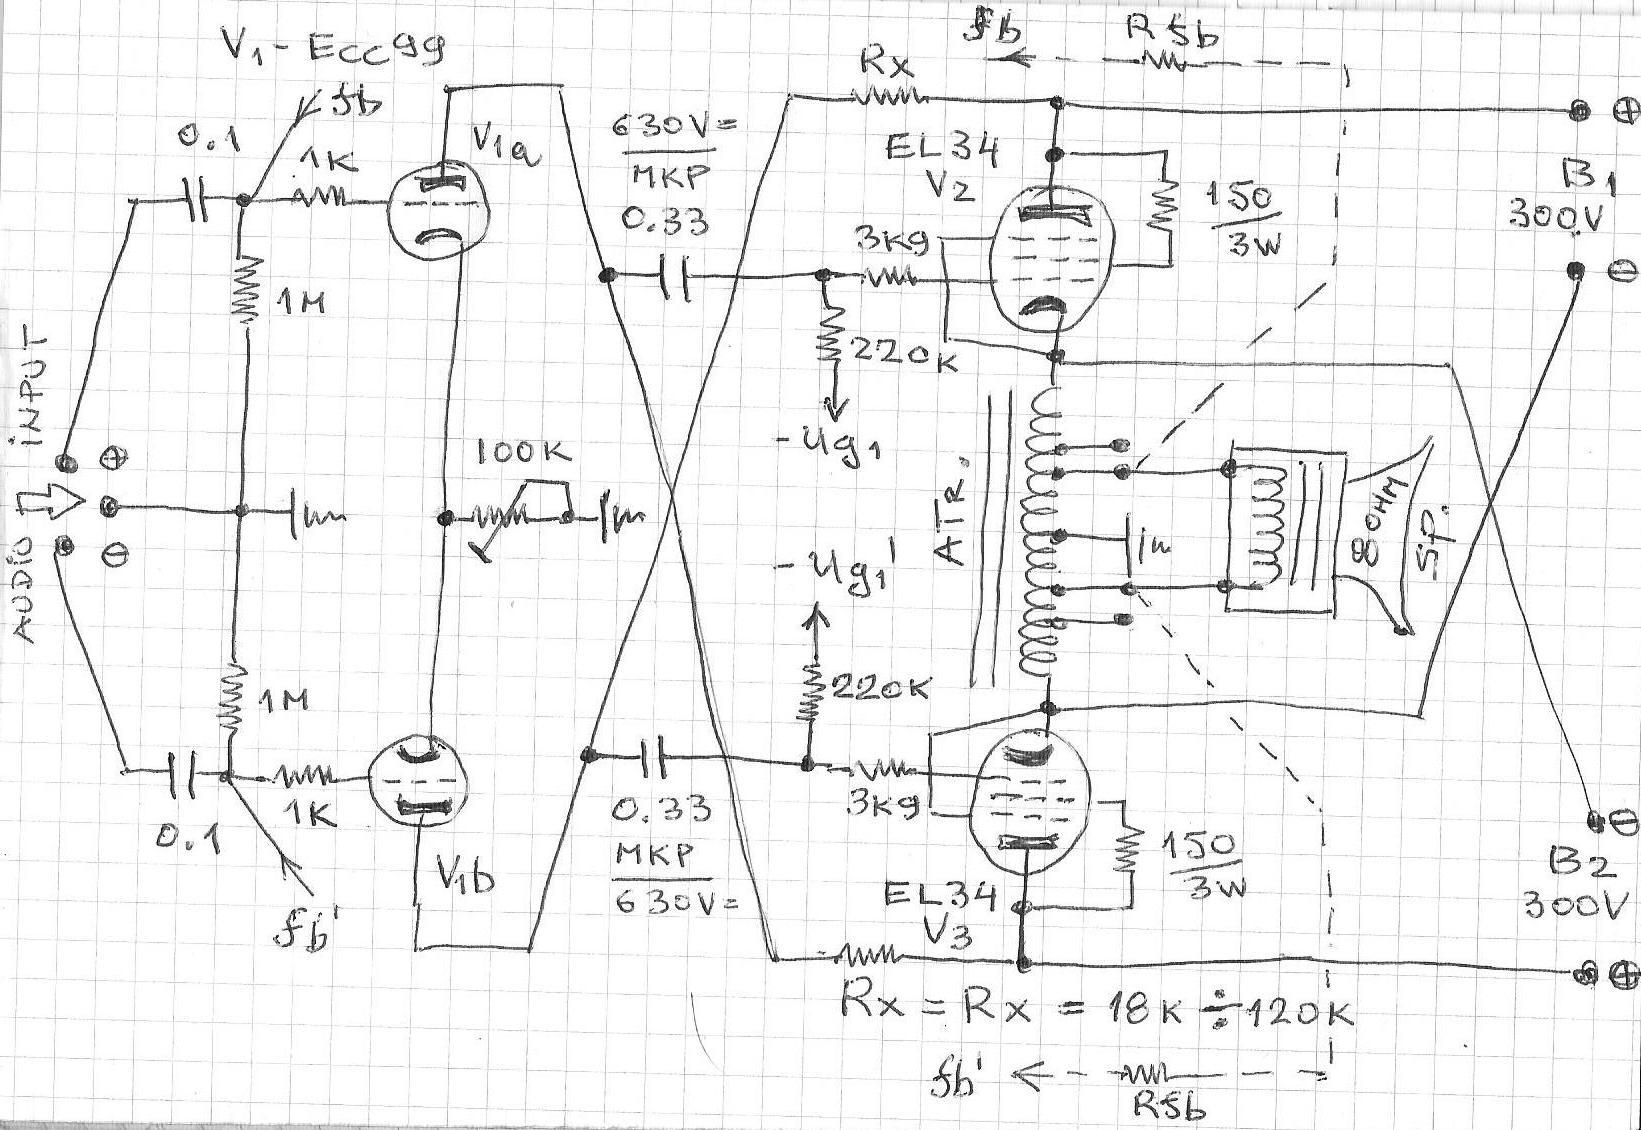 V1 - Ecc99
fb
R5b
Rx
fb
0.1
1K
V1a
630V=
MKP
0.33
EL34
V2
150
3W
B1
300V
3K9
1M
220K
-Ug1
İNPUT
AUDİO
100K
ATR.
8OHM
SP.
-Ug1'
220K
1M
0.1
1K
V1b
0.33
MKP
630V=
3K9
150
3W
EL34
V3
B2
300V
fb'
Rx = Rx = 18K ÷ 120K
fb'
R5b